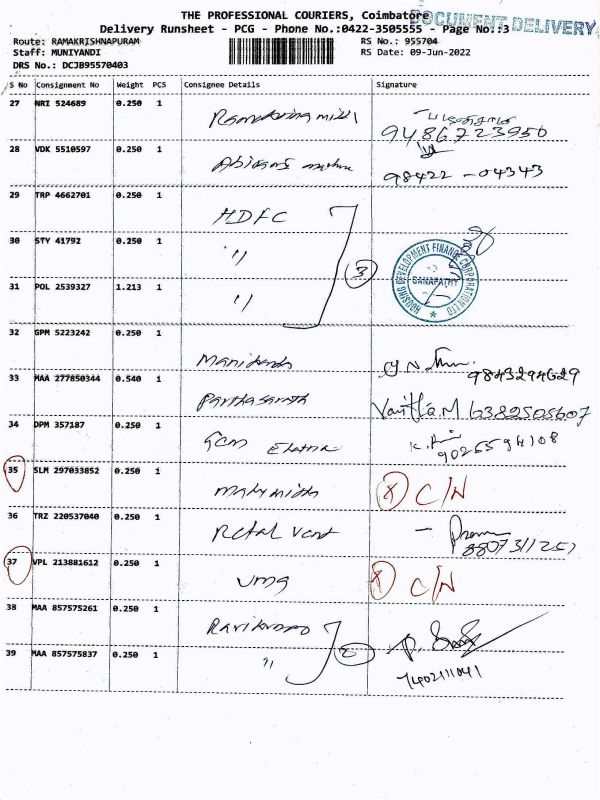 THE PROFESSIONAL COURIERS, Coimbatore
DOCUMENT DELIVERY
Delivery Runsheet - PCG - Phone No.:0422-3505555 - Page No.:3
Route: RAMAKRISHNAPURAM RS No.: 955704
Staff: MUNIYANDI RS Date: 09-Jun-2022
DRS No.: DCJB95570403
S No Consignment No Weight PCS Consignee Details Signature
27 NRI 524689 0.250 1
9486723950
28 VDK 5510597 0.250 1
98422 - 04343
29 TRP 4662701 0.250 1 HDFC
30 STY 41792 0.250 1 " 3
HOUSING DEVELOPMENT FINANCE CORPORATION LTD
GANAPATHY
31 POL 2539327 1.213 1 "
32 GPM 5223242 0.250 1
9843294629
33 MAA 277850344 0.540 1 Parthasarath
6382505607
34 DPM 357187 0.250 1
9025594108
35 SLM 297033852 0.250 1 C/N
36 TRZ 220537040 0.250 1 Retal Vent
8807311257
37 VPL 213881612 0.250 1 Umg C/N
38 MAA 857575261 0.250 1
39 MAA 857575837 0.250 1 " 2
7402111041